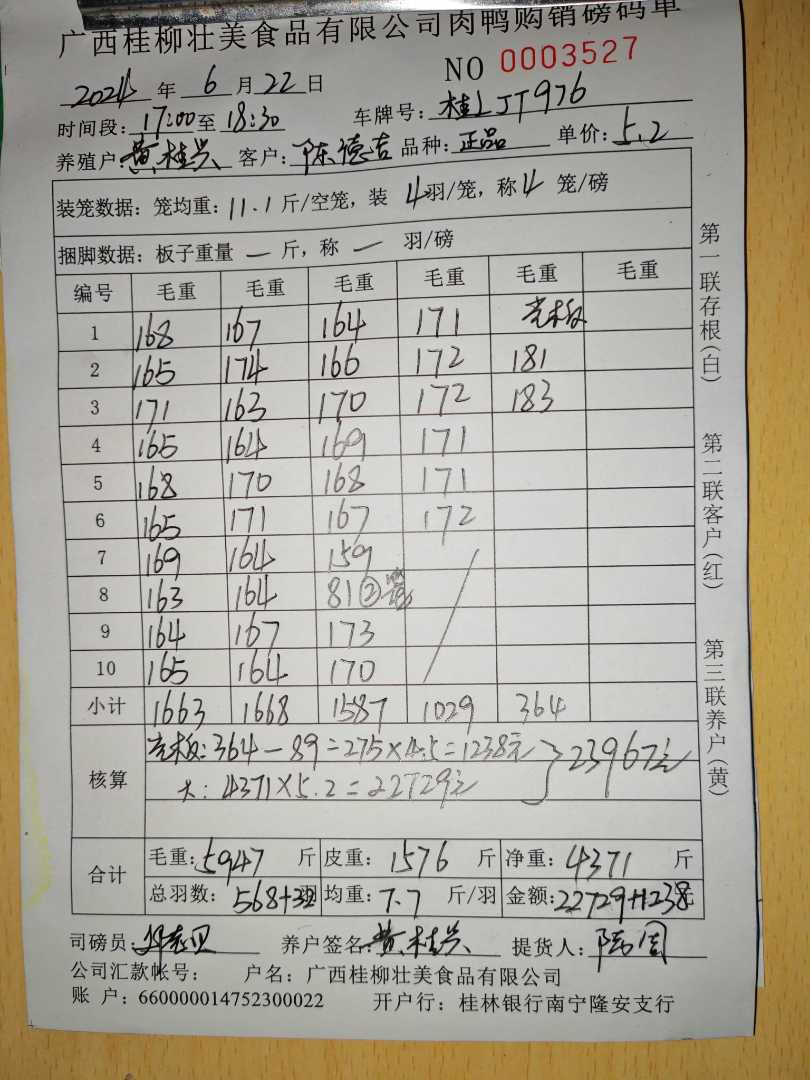 广西桂柳壮美食品有限公司肉鸭购销磅码单
NO 0003527
2024 年 6 月 22 日
时间段: 17:00 至 18:30 车牌号: 桂LJT976
养殖户: 黄桂兴 客户: 陈德吉 品种: 正品 单价: 5.2
装笼数据: 笼均重: 11.1 斤/空笼, 装 4 羽/笼, 称 4 笼/磅
捆脚数据: 板子重量 一 斤, 称 一 羽/磅
编号 毛重 毛重 毛重 毛重 毛重 毛重
1 168 167 164 171 壳板
2 165 174 166 172 181
3 171 163 170 172 183
4 165 164 169 171
5 168 170 168 171
6 165 171 167 172
7 169 164 159
8 163 164 81②笼
9 164 167 173
10 165 164 170
小计 1663 1668 1587 1029 364
核算 壳板: 364-89=275×4.5=1238元 } 23967元
大: 4371×5.2=22729元
合计 毛重: 5947 斤 皮重: 1576 斤 净重: 4371 斤
总羽数: 568+32 羽 均重: 7.7 斤/羽 金额: 22729+1238 元
司磅员: 养户签名: 黄桂兴 提货人:
公司汇款帐号: 户名: 广西桂柳壮美食品有限公司
账 户: 660000014752300022 开户行: 桂林银行南宁隆安支行
第一联存根(白) 第二联客户(红) 第三联养户(黄)